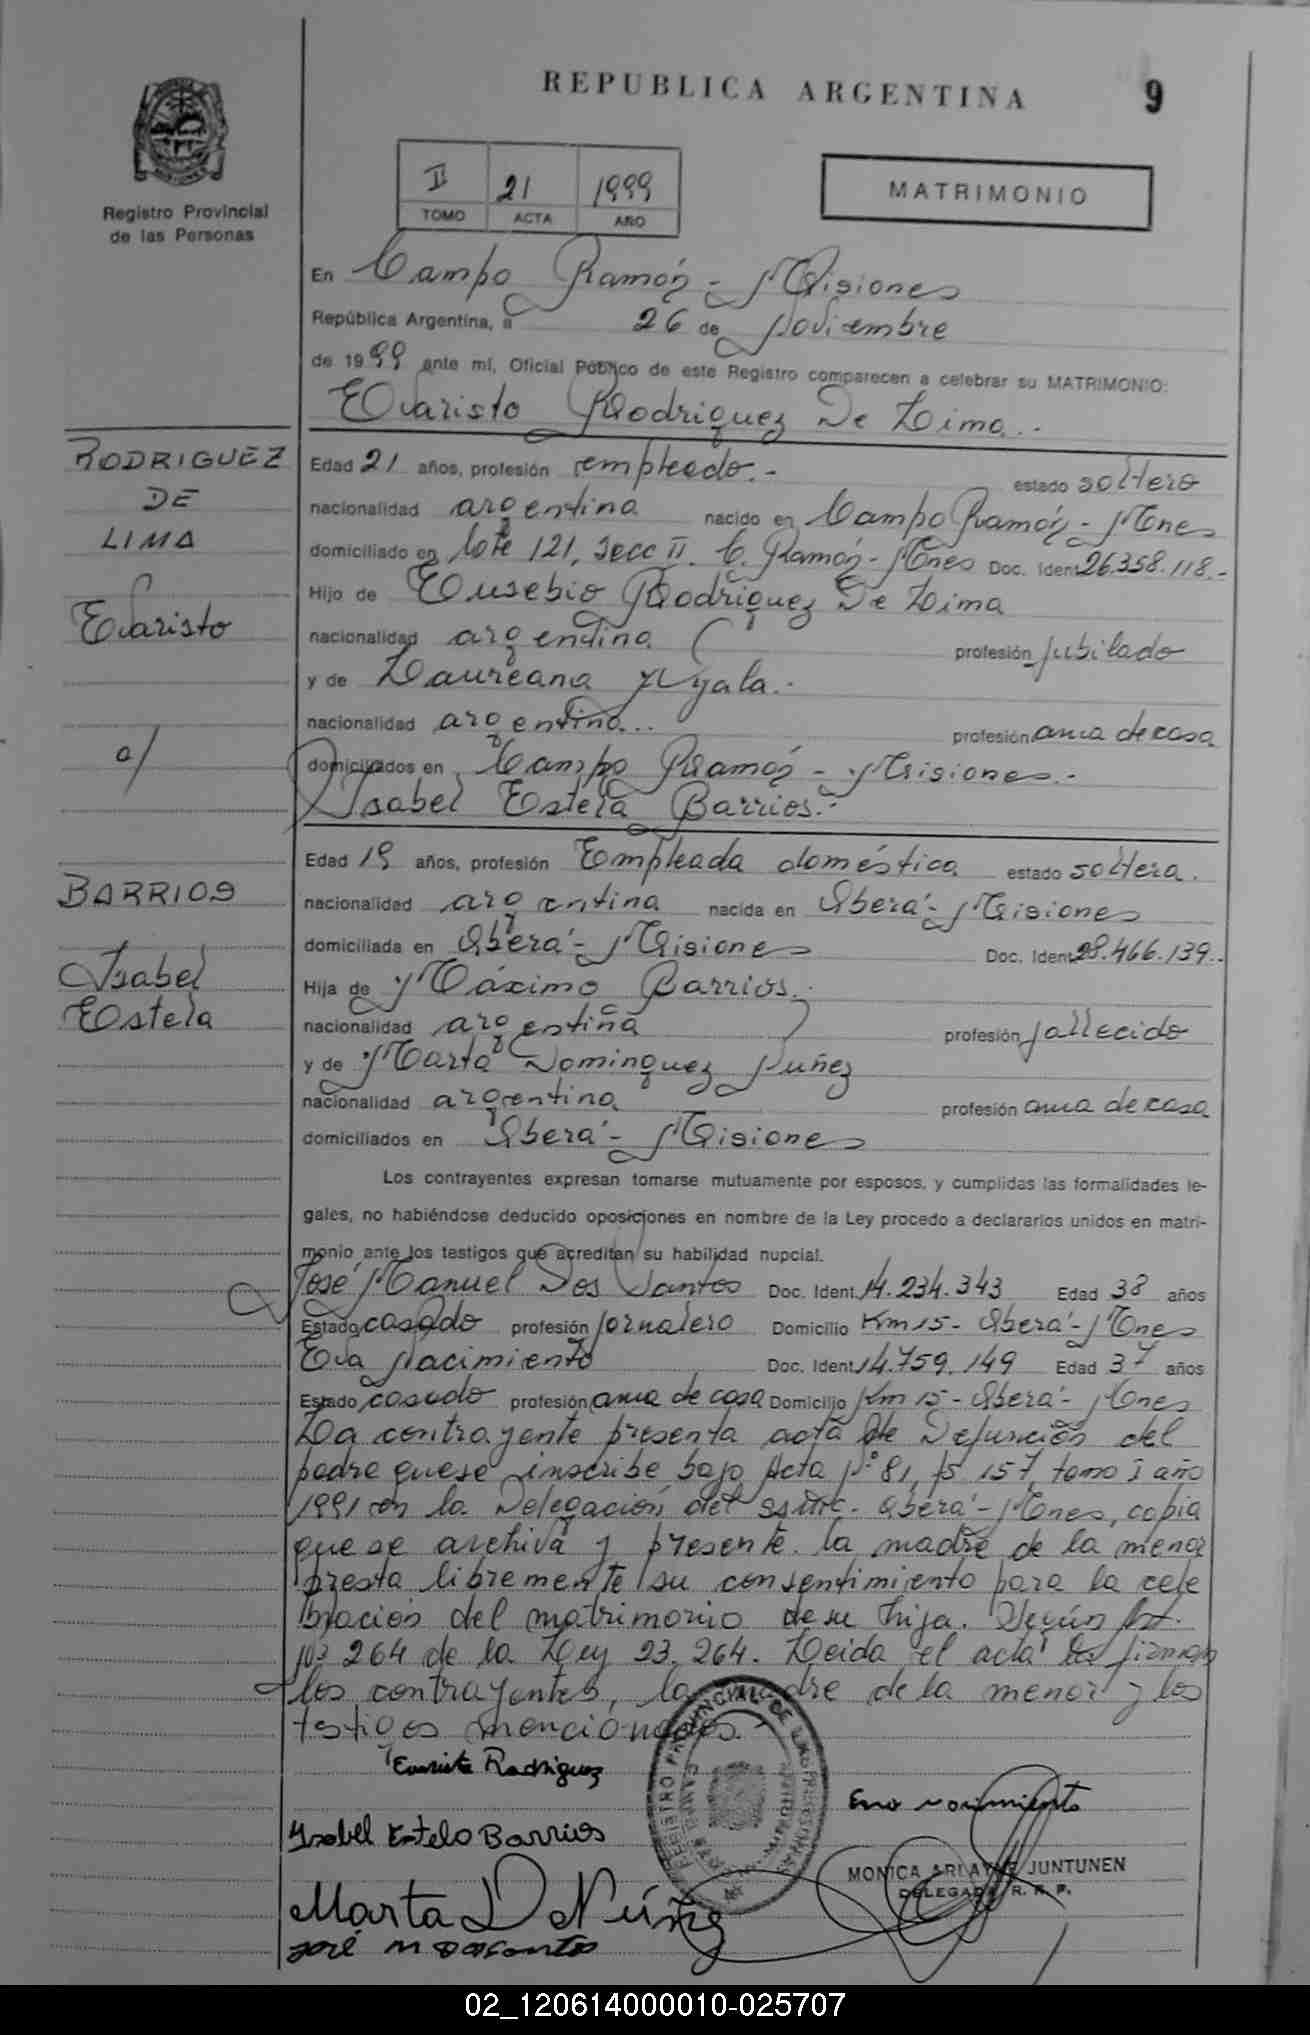 REPUBLICA ARGENTINA
9
Registro Provincial
de las Personas
II 21 1999
TOMO ACTA AÑO
MATRIMONIO
En Campo Ramón - Misiones
República Argentina, a 26 de Noviembre
de 1999 ante mí, Oficial Público de este Registro comparecen a celebrar su MATRIMONIO:
Evaristo Rodriguez De Lima.-
RODRIGUEZ
DE
LIMA
Evaristo
c/
BARRIOS
Isabel
Estela
Edad 21 años, profesión empleado.- estado soltero
nacionalidad argentina nacido en Campo Ramón - Mnes
domiciliado en Lote 121, Secc II. C. Ramón - Mnes Doc. Ident. 26.358.118.-
Hijo de Eusebio Rodriguez De Lima
nacionalidad argentina profesión jubilado
y de Laureana Ayala.-
nacionalidad argentina... profesión ama de casa
domiciliados en Campo Ramón - Misiones.-
Isabel Estela Barrios.-
Edad 19 años, profesión Empleada doméstica estado soltera.
nacionalidad argentina nacida en Oberá - Misiones
domiciliada en Oberá - Misiones Doc. Ident. 28.466.139.-
Hija de Máximo Barrios.-
nacionalidad argentina profesión fallecido
y de Marta Dominguez Nuñez
nacionalidad argentina profesión ama de casa
domiciliados en Oberá - Misiones
Los contrayentes expresan tomarse mutuamente por esposos, y cumplidas las formalidades le-
gales, no habiéndose deducido oposiciones en nombre de la Ley procedo a declararlos unidos en matri-
monio ante los testigos que acreditan su habilidad nupcial.
José Manuel Dos Santos Doc. Ident. 14.234.343 Edad 38 años
Estado casado profesión jornalero Domicilio Km 15 - Oberá - Mnes
Eva Nacimiento Doc. Ident. 14.759.149 Edad 37 años
Estado casado profesión ama de casa Domicilio Km 15 - Oberá - Mnes
La contrayente presenta acta de Defunción del
padre que se inscribe bajo Acta Nº 81, fs 157, tomo I año
1991 en la Delegación del Oberá - Mnes, copia
que se archiva y presente la madre de la menor
presta libremente su consentimiento para la cele
bración del matrimonio de su hija. Según Art.
Nº 264 de la Ley 23.264. Leida el acta la firman
los contrayentes, la madre de la menor y los
testigos mencionados.
Evaristo Rodriguez
Eva Nacimiento
Isabel Estela Barrios
REGISTRO PROVINCIAL DE LAS PERSONAS
MONICA ARLAYNE JUNTUNEN
DELEGADA R. P. P.
Marta D Núñez
José M Dos Santos
02_120614000010-025707